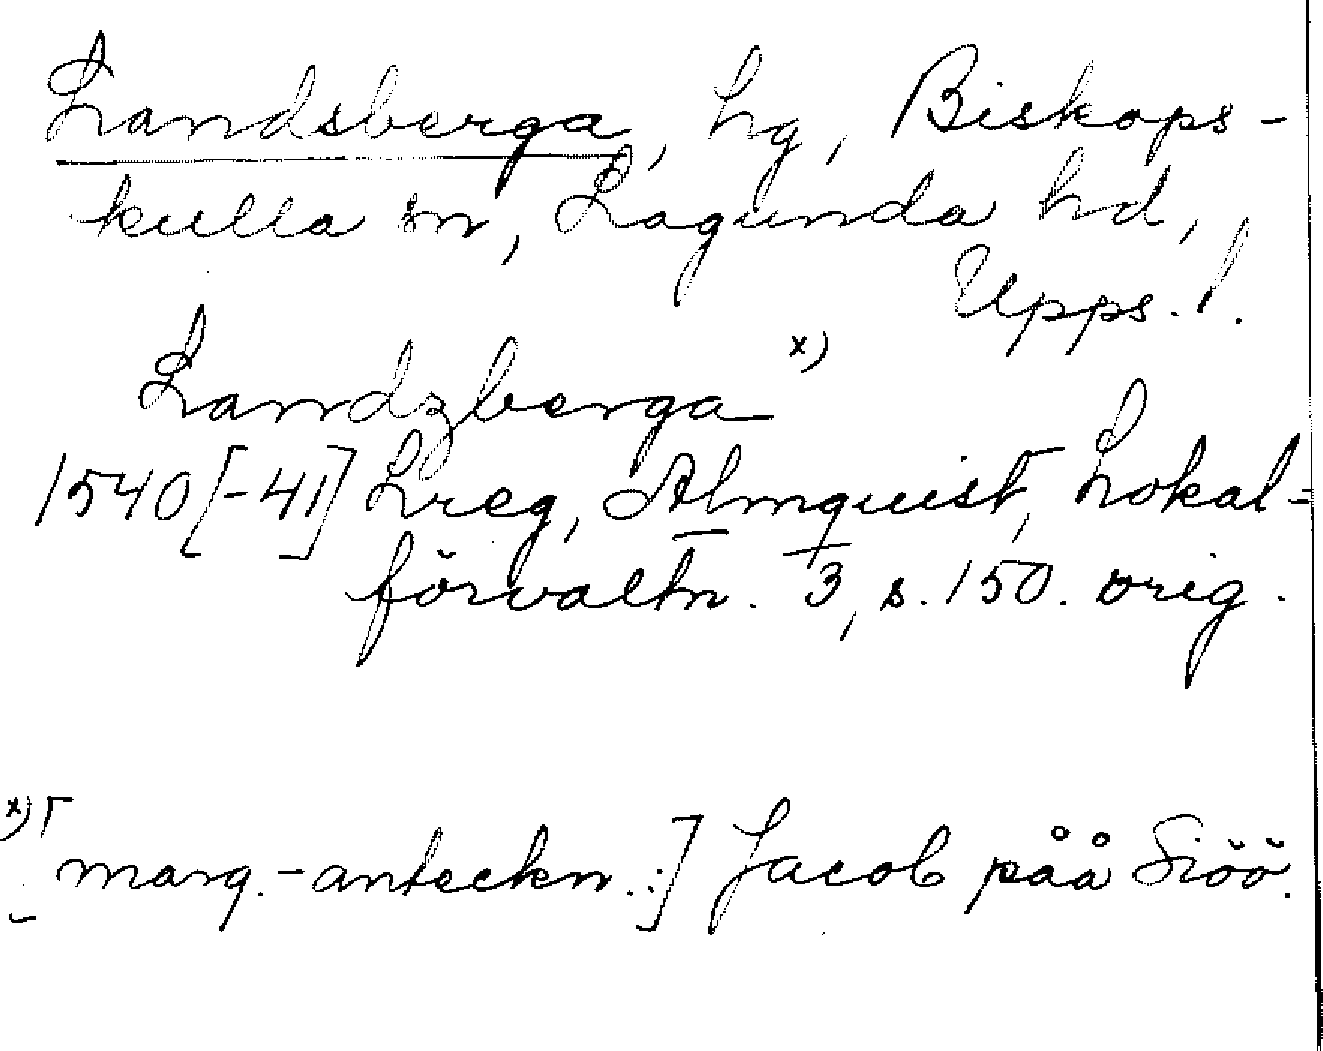 Landsberga, hg, Biskops-
kulla sn, Lagunda hd,
Upps. l.
Landzberga x)
1540[-41] Lreg, Almquist, Lokal-
förvaltn. 3, s. 150. orig.
x) [marg.-anteckn.:] Jacob påå Siöö.